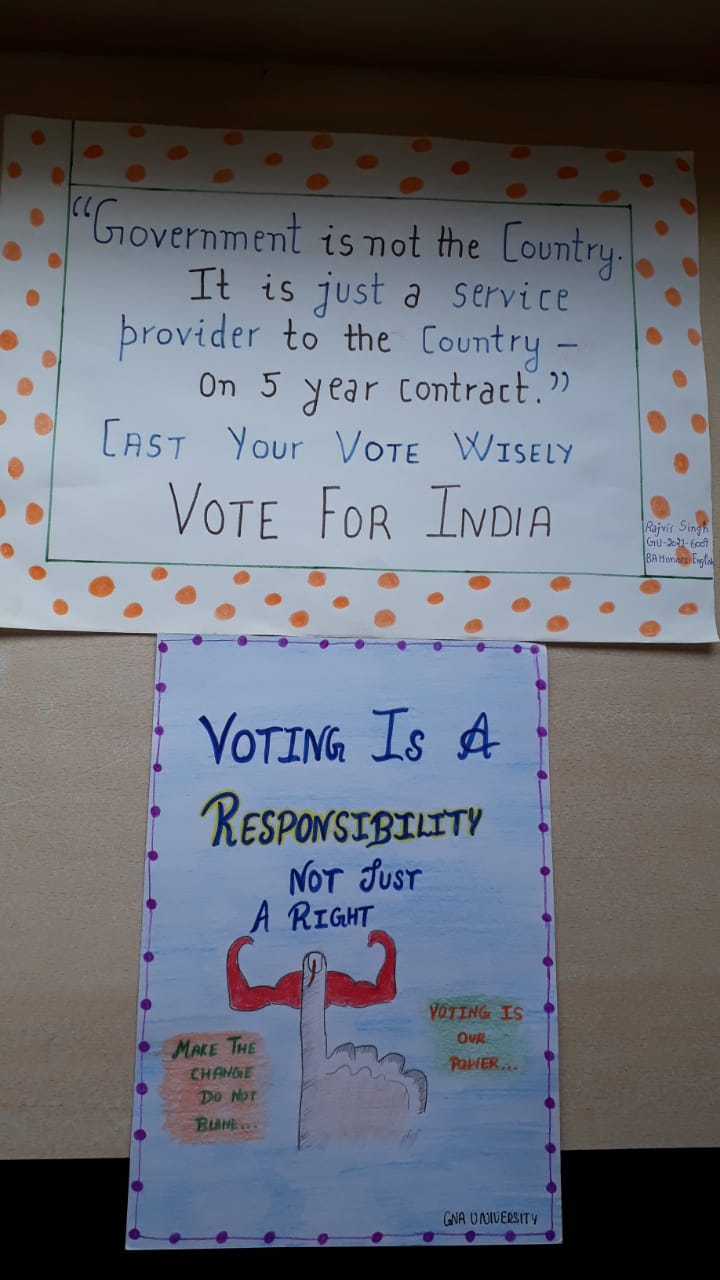 “Government is not the Country.
It is just a service
provider to the Country –
On 5 year contract.”
CAST YOUR VOTE WISELY
VOTE FOR INDIA
Rajvir Singh
GU-2021-6009
BA Honors English
VOTING IS A
RESPONSIBILITY
NOT JUST
A RIGHT
VOTING IS
OUR
POWER...
MAKE THE
CHANGE
DO NOT
BLAME...
GNA UNIVERSITY